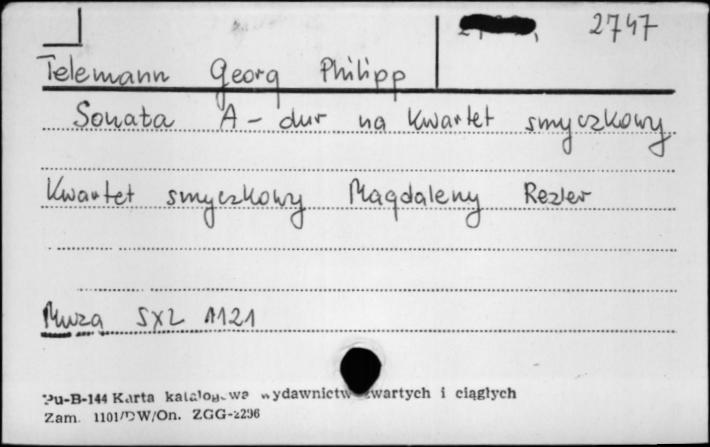 2747
Telemann Georg Philipp
Sonata A-dur na kwartet smyczkowy
Kwartet smyczkowy Magdaleny Rezler
Muza SXL 1121
Pu-B-144 Karta katalogowa wydawnictw zwartych i ciągłych
Zam. 1101/DW/On. ZGG-2296